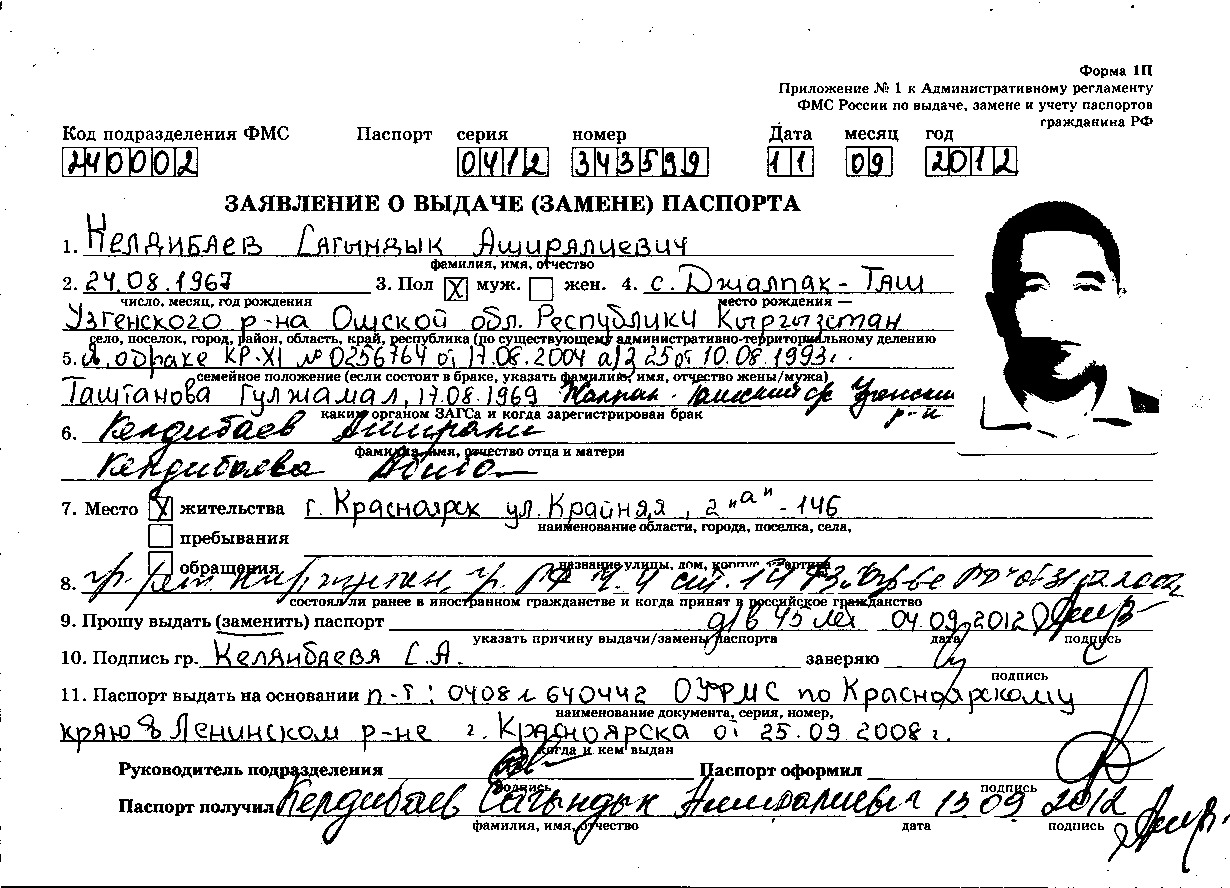 Форма 1П
Приложение № 1 к Административному регламенту
ФМС России по выдаче, замене и учету паспортов
гражданина РФ
Код подразделения ФМС Паспорт серия номер Дата месяц год
240002 0412 343599 11 09 2012
ЗАЯВЛЕНИЕ О ВЫДАЧЕ (ЗАМЕНЕ) ПАСПОРТА
1. Келдибаев Сагындык Аширалиевич
фамилия, имя, отчество
2. 24.08.1967 3. Пол X муж. жен. 4. с. Джалпак-Таш
число, месяц, год рождения место рождения —
Узгенского р-на Ошской обл. Республики Кыргызстан
село, поселок, город, район, область, край, республика (по существующему административно-территориальному делению
5. браке КР-XI № 0256764 от 17.08.2004 а/з 25 от 10.08.1993г.
семейное положение (если состоит в браке, указать фамилию, имя, отчество жены/мужа)
Таштанова Гулжамал, 17.08.1969
р-н
каким органом ЗАГСа и когда зарегистрирован брак
6. Келдибаев Аширали
фамилия, имя, отчество отца и матери
Келдибаева
7. Место X жительства г. Красноярск ул. Крайняя, 2 "а" - 146
наименование области, города, поселка, села,
пребывания
обращения название улицы, дом, корпус, квартира
8. гр. РФ
состоял ли ранее в иностранном гражданстве и когда принят в российское гражданство
9. Прошу выдать (заменить) паспорт 45 лет 04.09.2012
указать причину выдачи/замены паспорта дата подпись
10. Подпись гр. Келдибаева С.А. заверяю
подпись
11. Паспорт выдать на основании п-т: 0408 № 640442 ОУФМС по Красноярскому
наименование документа, серия, номер,
краю в Ленинском р-не г. Красноярска от 25.09.2008г.
когда и кем выдан
Руководитель подразделения Паспорт оформил
подпись подпись
Паспорт получил Келдибаев Сагындык Аширалиевич 13 09 2012
фамилия, имя, отчество дата подпись